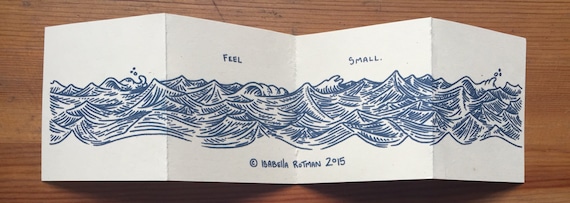 FEEL
SMALL.
© ISABELLA ROTMAN 2015